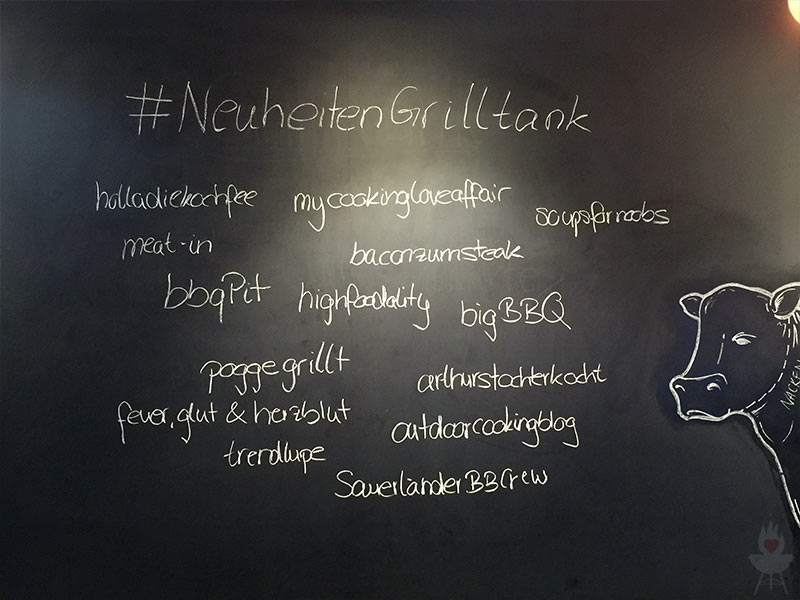 #NeuheitenGrilltank
holladiekochfee mycookingloveaffair soupsfornoobs
meat-in baconzumsteak
bbqPit highfoodality bigBBQ
poggegrillt arthurstochterkocht
feuer, glut & herzblut outdoorcookingblog
trendlupe
SauerländerBBCrew
NACKEN